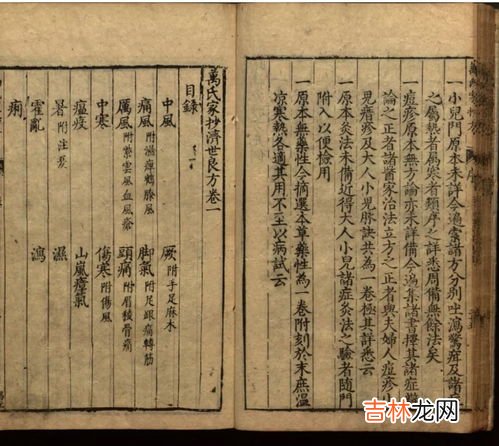 一小兒門原本未詳今遍索諸方分別吐瀉驚疳及諸
之屬熱者屬寒者類序之詳悉周備無餘法矣
一痘疹原本無方論亦未詳備今遍集諸書擇其諸症
論之正者諸醫家治法立方之正者與夫婦人痘疹
見瘄疹及大人小兒脉訣共為一卷極其詳悉云
一原本灸法未備近得大人小兒諸症灸法之驗者隨門
附入以便檢用
一原本無藥性今摘選本草藥性為一卷附刻於末庶溫
凉寒熱各適其用不至以病試云
萬氏家抄濟世良方卷一
目錄
中風 厥附手足麻木
痛風附濕痺鶴膝風 脚氣附足跟痛轉筋
厲風附紫雲風血風瘡 頭痛附眉稜骨痛
中寒 傷寒附傷風
瘟疫 山嵐瘴氣
暑附注夏 濕
霍亂 瀉
痢
吉林龙网